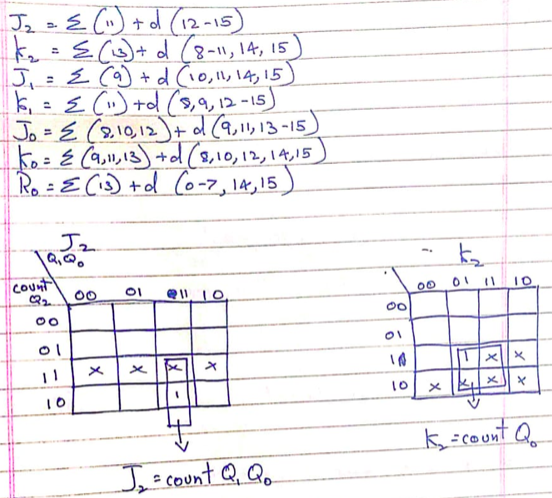 J₂ = Σ(11) + d (12-15)
K₂ = Σ(13) + d (8-11, 14, 15)
J₁ = Σ(9) + d(10,11,14,15)
K₁ = Σ(11) + d(8,9,12-15)
J₀ = Σ(8,10,12) + d(9,11,13-15)
K₀ = Σ(9,11,13) + d(8,10,12,14,15)
R₀ = Σ(13) + d (0-7, 14,15)
J₂
Q₁Q₀
count
Q₂
00 01 11 10
00
01
11 x x x x
10 1
J₂ = count Q₁ Q₀
K₂
00 01 11 10
00
01
10 1 x x
10 x x x x
K₂ = count Q₀